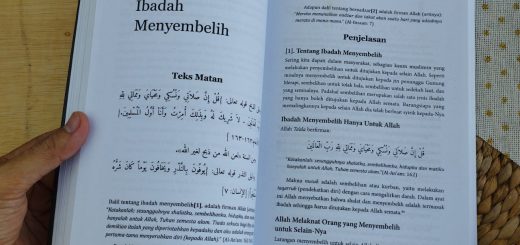 Ibadah
Menyembelih
Teks Matan
قوله تعالى: ﴿قُلْ إِنَّ صَلَاتِي وَنُسُكِي وَمَحْيَايَ وَمَمَاتِي لِلَّهِ
لَا شَرِيكَ لَهُ وَبِذَلِكَ أُمِرْتُ وَأَنَا أَوَّلُ الْمُسْلِمِينَ﴾
[١٦٢-١٦٣]
قوله تعالى: ﴿يُوفُونَ بِالنَّذْرِ وَيَخَافُونَ يَوْمًا كَانَ شَرُّهُ
[الإنسان: ٧]
Dalil tentang ibadah menyembelih[1], adalah firman Allah
"Katakanlah: sesungguhnya shalatku, sembelihanku, hidupku dan
matiku hanyalah untuk Allah, Tuhan semesta alam. Tiada sekutu
demikian itulah yang diperintahkan kepadaku dan aku adalah orang yang
pertama-tama menyerahkan diri (kepada Allah)."
Adapun dalil tentang bernadzar[2] adalah firman Allah (artinya):
"Mereka menunaikan nadzar dan takut akan suatu hari yang adzabnya
merata di mana-mana."
Penjelasan
[1]. Tentang Ibadah Menyembelih
Sering kita dapati dalam masyarakat, sebagian kaum muslimin yang
melakukan penyembelihan untuk ditujukan kepada selain Allah. Seperti
yang semisalnya. Padahal sembelihan merupakan salah satu jenis ibadah
yang hanya boleh ditujukan kepada Allah semata. Barangsiapa yang
mengalihkannya kepada selain Allah, maka dia telah berbuat syirik kepada-Nya
Ibadah Menyembelih Hanya Untuk Allah
Allah Ta'ala berfirman:
قُلْ إِنَّ صَلَاتِي وَنُسُكِي وَمَحْيَايَ وَمَمَاتِي لِلَّهِ رَبِّ الْعَالَمِينَ
"Katakanlah: sesungguhnya shalatku, sembelihanku, hidupku dan matiku
hanyalah untuk Allah, Tuhan semesta alam." (Al-An'am: 162)
Makna nusuk adalah sembelihan atau kurban, yaitu melakukan
taqarrub (pendekatan diri) dengan cara mengalirkan darah. Dalam ayat ini
Allah menerangkan bahwa shalat dan menyembelih adalah termasuk
ibadah sehingga harus ditujukan kepada Allah semata.
Allah Melaknat Orang yang Menyembelih
untuk Selain-Nya
Larangan menyembelih untuk selain Allah